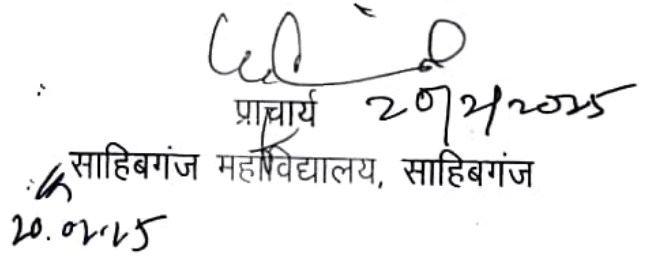 प्राचार्य 20/2/2025
साहिबगंज महाविद्यालय, साहिबगंज
20.02.25